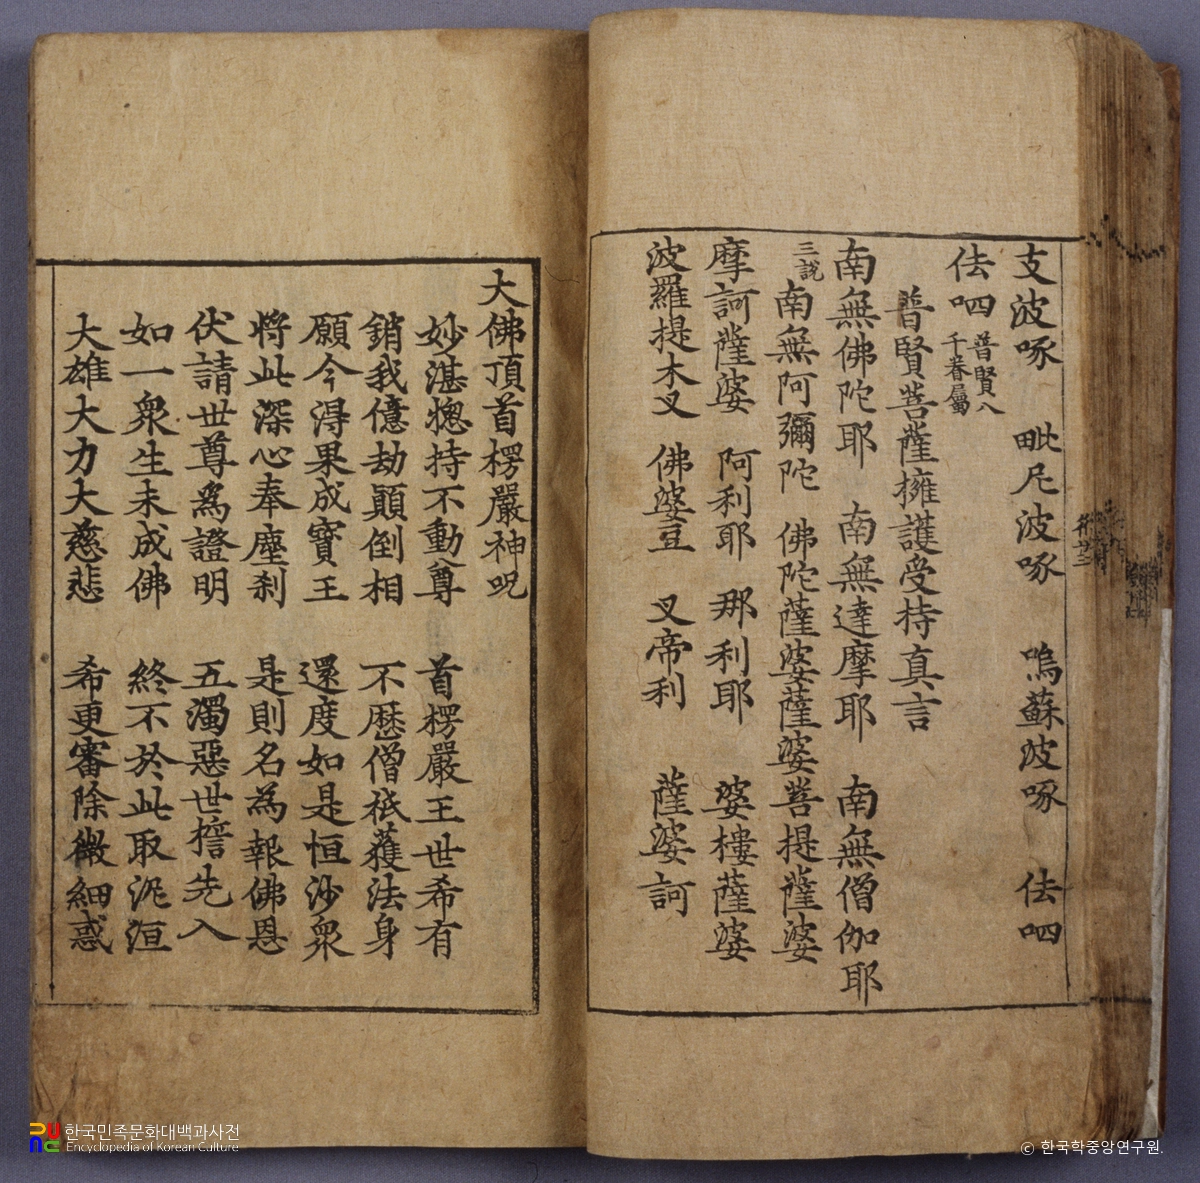 支波啄 毗尼波啄 嗚蘇波啄 佉呬
佉呬 普賢八千眷屬
普賢菩薩擁護受持真言
南無佛陀耶 南無達摩耶 南無僧伽耶
三說 南無阿彌陀 佛陀薩婆薩婆菩提薩婆
摩訶薩婆 阿利耶 那利耶 婆樓薩婆
波羅提木叉 佛婆豆 叉帝利 薩婆訶
大佛頂首楞嚴神呪
妙湛揔持不動尊 首楞嚴王世希有
銷我億劫顚倒相 不歷僧祇獲法身
願今得果成寶王 還度如是恒沙衆
將此深心奉塵刹 是則名為報佛恩
伏請世尊爲證明 五濁惡世誓先入
如一衆生未成佛 終不於此取泥洹
大雄大力大慈悲 希更審除微細惑
한국민족문화대백과사전
Encyclopedia of Korean Culture
© 한국학중앙연구원.